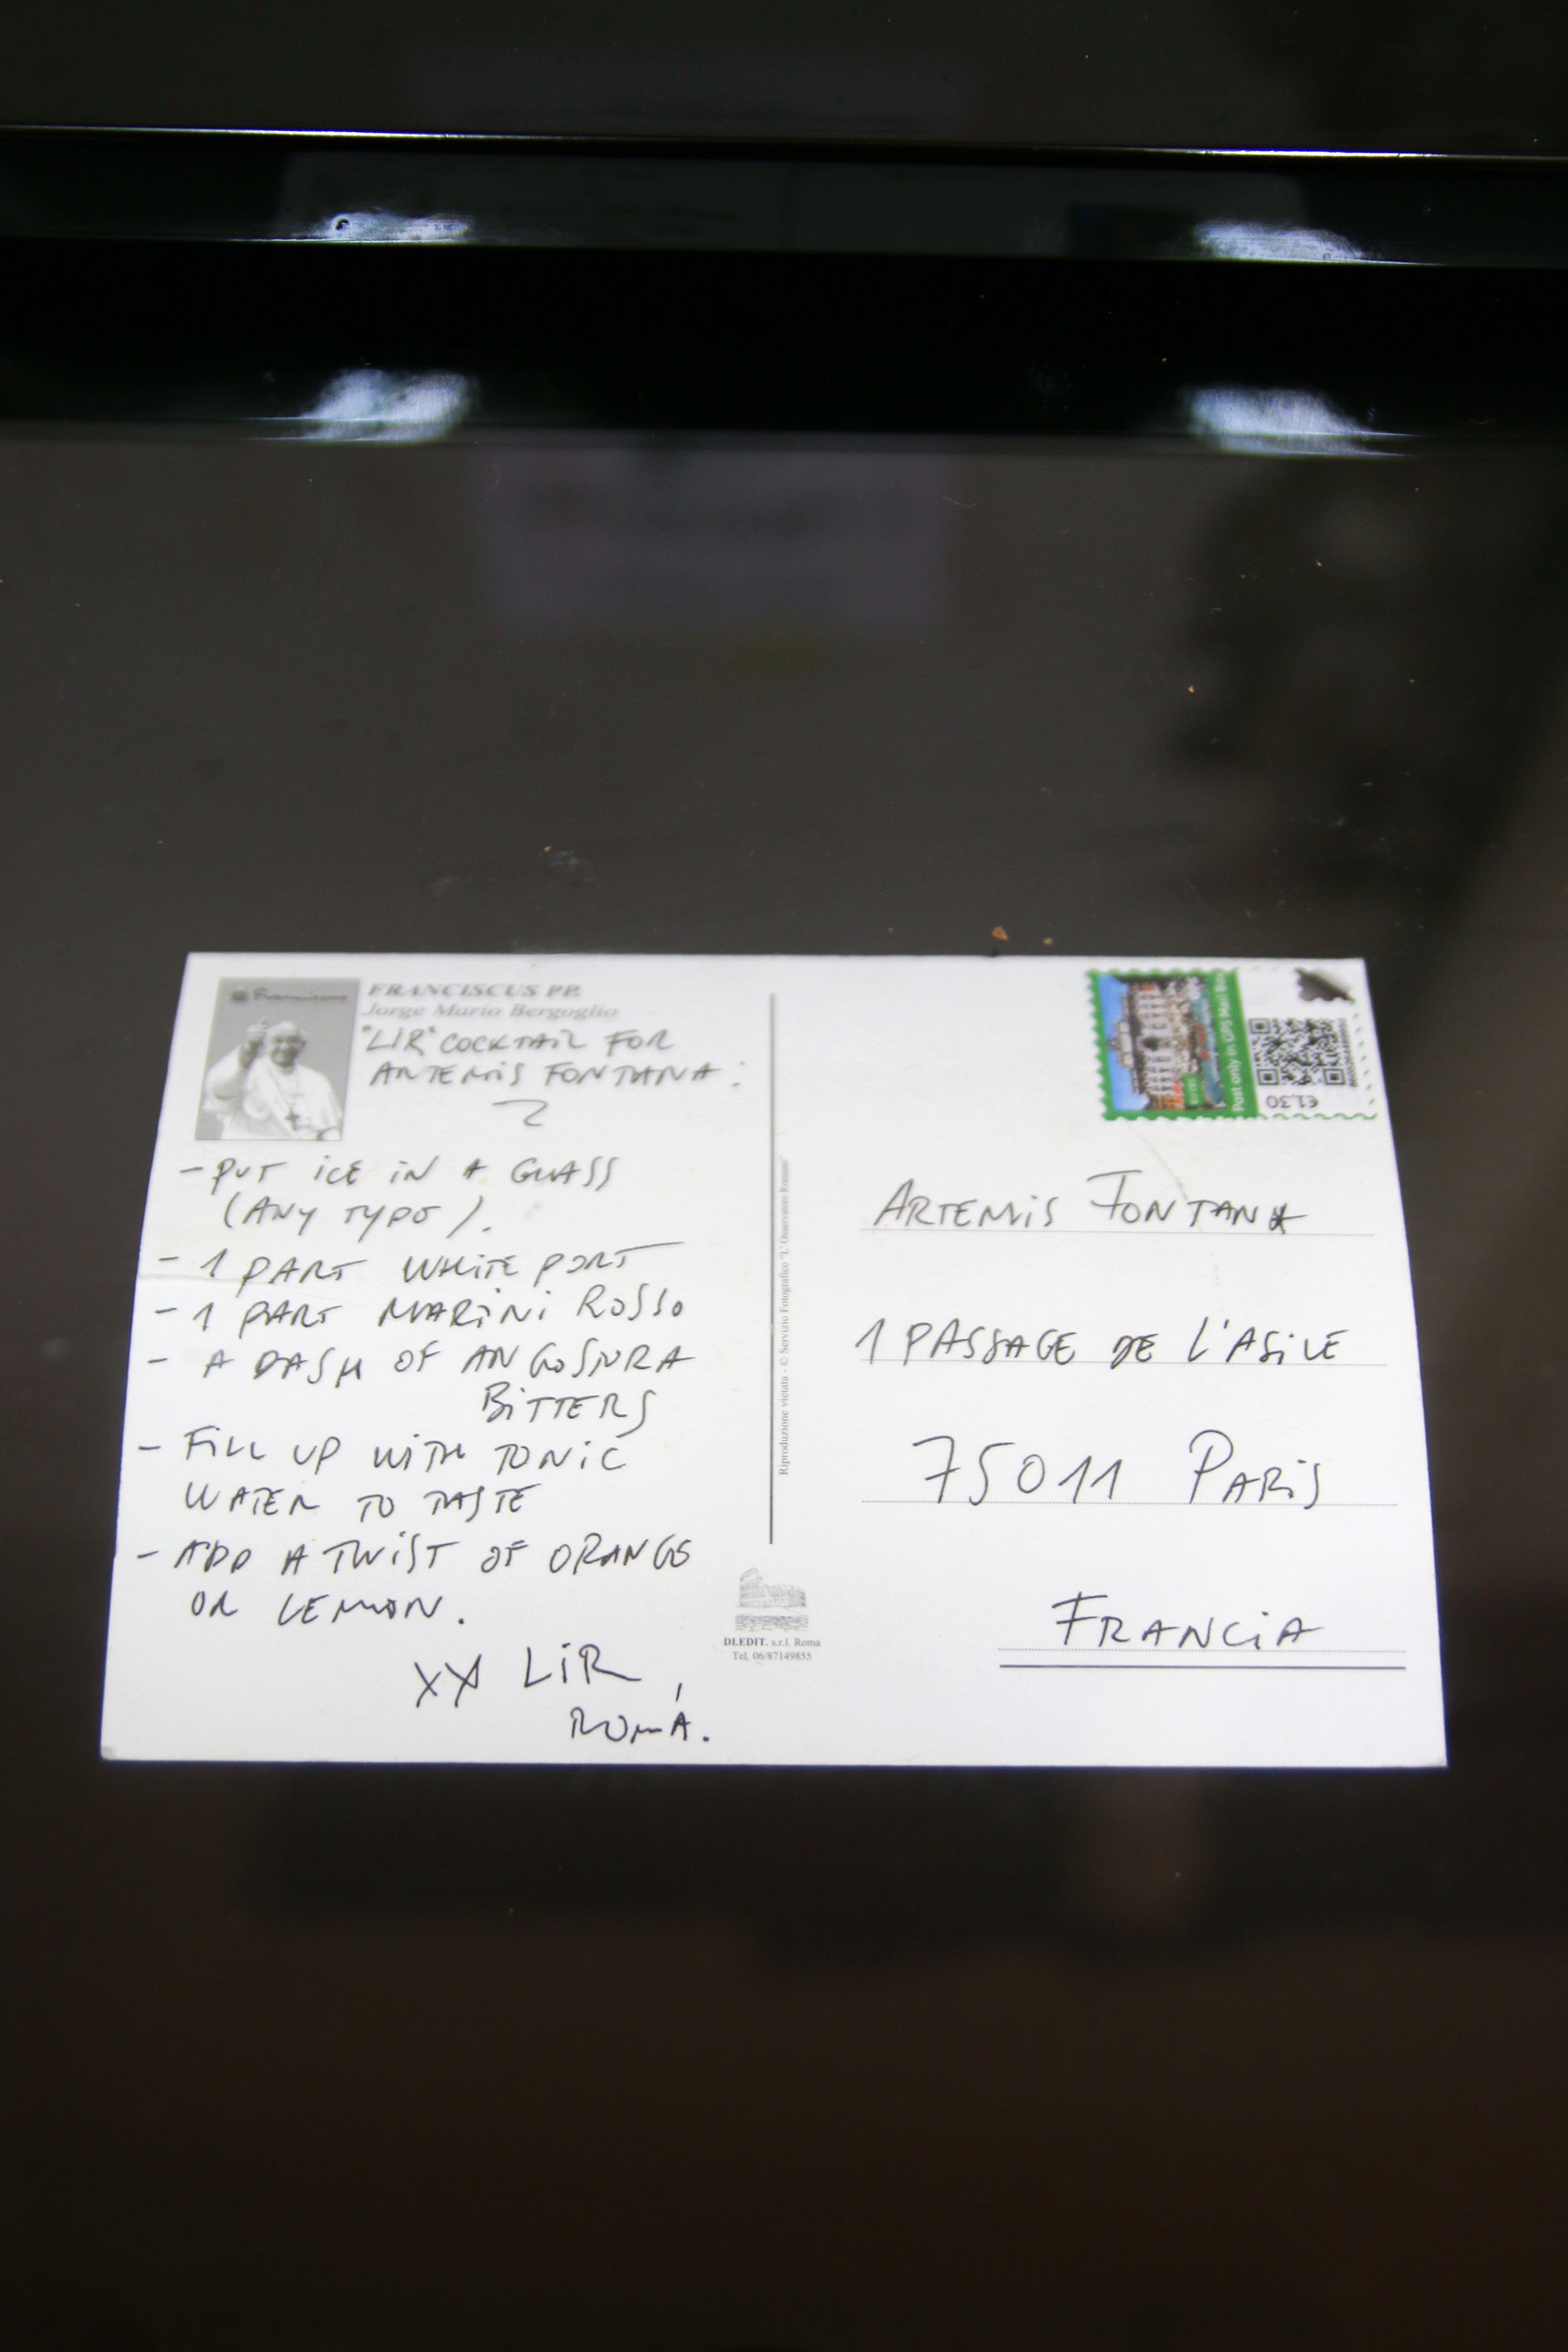 Franciscus
FRANCISCUS PP.
Jorge Mario Bergoglio
"LIR" COCKTAIL FOR
ARTEMIS FONTANA:
- PUT ICE IN A GLASS
(ANY TYPE).
- 1 PART WHITE PORT
- 1 PART MARTINI ROSSO
- A DASH OF ANGOSTURA
BITTERS
- FILL UP WITH TONIC
WATER TO TASTE
- ADD A TWIST OF ORANGE
OR LEMON.
XX LIR,
ROMA.
Riproduzione vietata - © Servizio Fotografico "L'Osservatore Romano"
DLEDIT. s.r.l. Roma
Tel. 06/87149855
Post only in GPS Mail Box
€1,30
ARTEMIS FONTANA
1 PASSAGE DE L'ASILE
75011 PARIS
FRANCIA